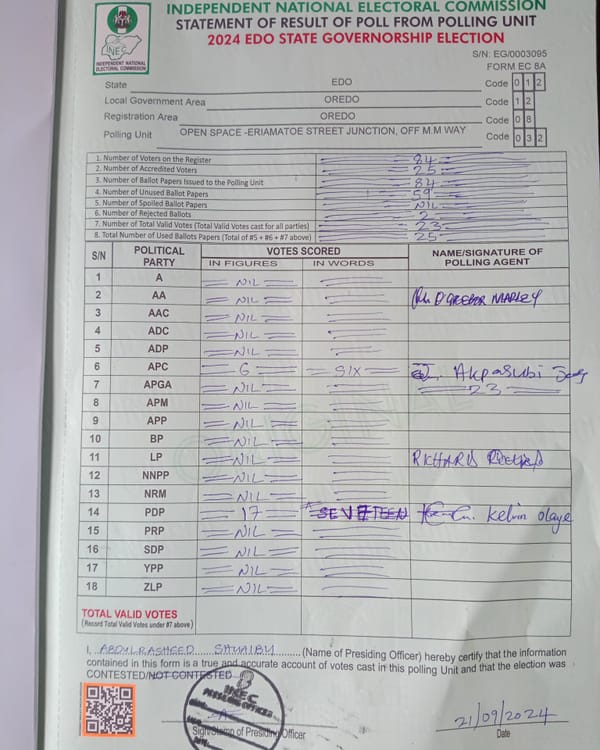 INDEPENDENT NATIONAL ELECTORAL COMMISSION
STATEMENT OF RESULT OF POLL FROM POLLING UNIT
2024 EDO STATE GOVERNORSHIP ELECTION
INEC
INDEPENDENT NATIONAL
ELECTORAL COMMISSION
S/N: EG/0003095
FORM EC 8A
State EDO Code 0 1 2
Local Government Area OREDO Code 1 2
Registration Area OREDO Code 0 8
Polling Unit OPEN SPACE -ERIAMATOE STREET JUNCTION, OFF M.M WAY Code 0 3 2
1. Number of Voters on the Register 84
2. Number of Accredited Voters 25
3. Number of Ballot Papers Issued to the Polling Unit 84
4. Number of Unused Ballot Papers 59
5. Number of Spoiled Ballot Papers NIL
6. Number of Rejected Ballots 2
7. Number of Total Valid Votes (Total Valid Votes cast for all parties) 23
8. Total Number of Used Ballots Papers (Total of #5 + #6 + #7 above) 25
S/N POLITICAL PARTY VOTES SCORED NAME/SIGNATURE OF POLLING AGENT
IN FIGURES IN WORDS
1 A NIL
2 AA NIL MARLEY
3 AAC NIL
4 ADC NIL
5 ADP NIL
6 APC 6 SIX Akpasubi
7 APGA NIL 23
8 APM NIL
9 APP NIL
10 BP NIL
11 LP NIL RICHARD
12 NNPP NIL
13 NRM NIL
14 PDP 17 SEVETEEN Kelvin Olaye
15 PRP NIL
16 SDP NIL
17 YPP NIL
18 ZLP NIL
TOTAL VALID VOTES
(Record Total Valid Votes under #7 above)
I, ABDULRASHEED SHUAIBU (Name of Presiding Officer) hereby certify that the information
contained in this form is a true and accurate account of votes cast in this polling Unit and that the election was
CONTESTED/NOT CONTESTED
INEC
PRESIDING OFFICER
21/09/2024
Sign/Stamp of Presiding Officer Date